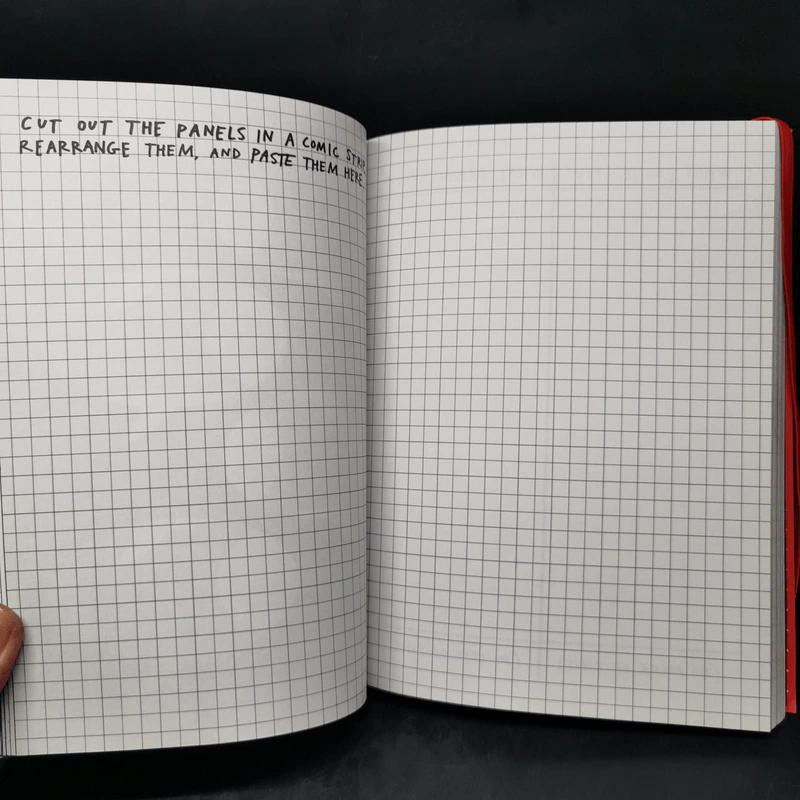 CUT OUT THE PANELS IN A COMIC STRIP,
REARRANGE THEM, AND PASTE THEM HERE.